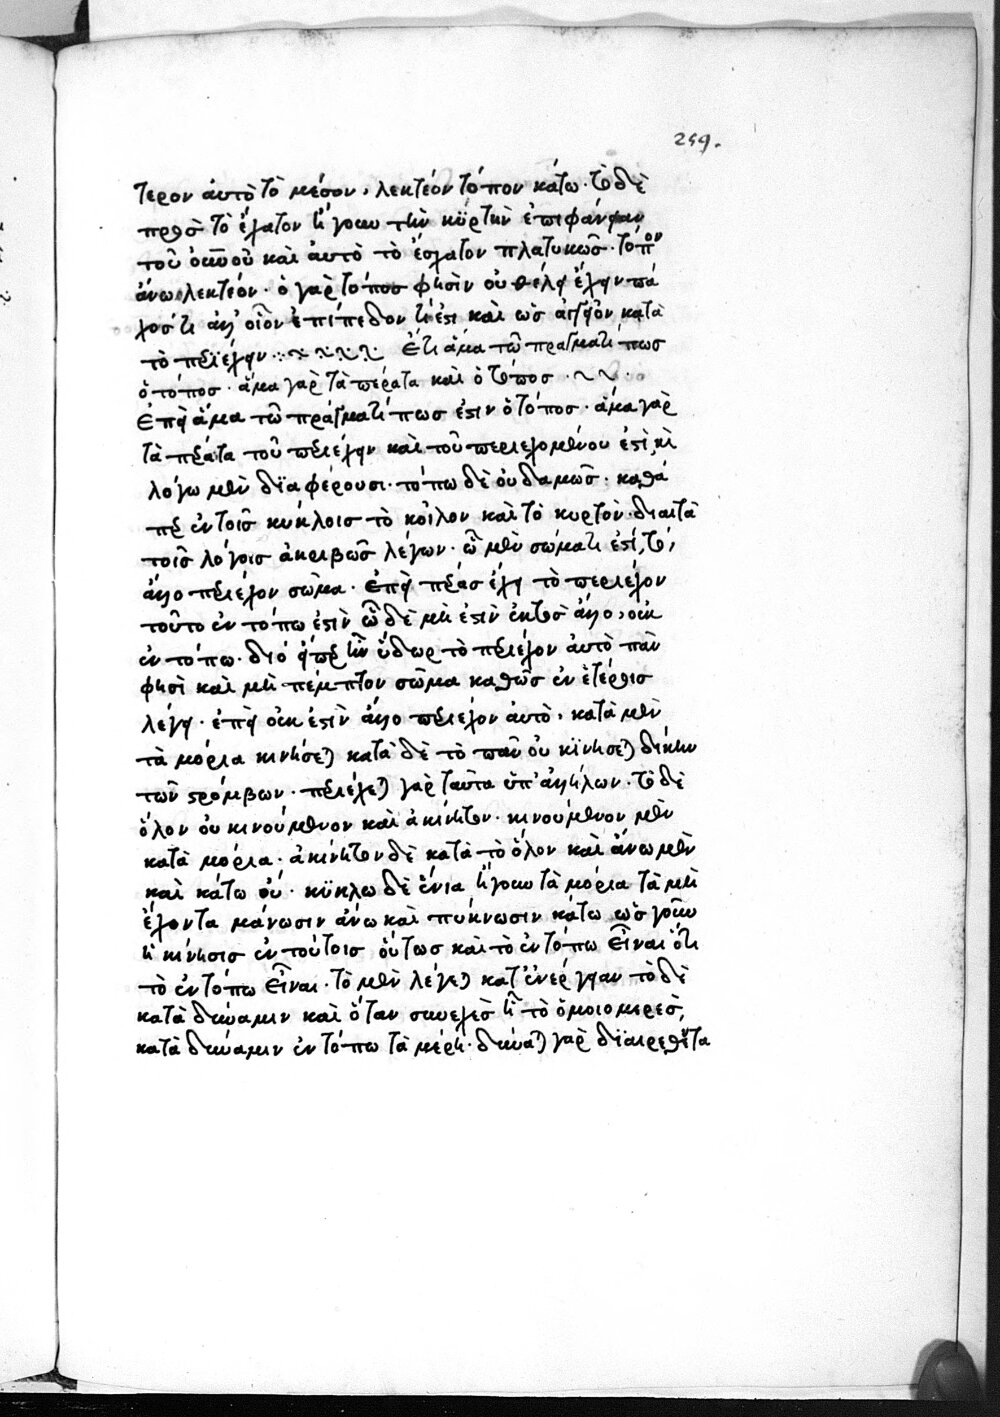 259.
τερον αὐτὸ τὸ μέσον, λεκτέον τόπον κάτω· τὸ δὲ
πρὸς τὸ ἔσχατον ἤγουν τὴν κυρτὴν ἐπιφάνειαν
τοῦ οὐνοῦ καὶ αὐτὸ τὸ ἔσχατον πλατυκῶς· τόπον
ἄνω λεκτέον· ὁ γὰρ τόπος φησὶν οὐ θέλει ἔχειν πά
χος τι ἀλλ' οἷον ἐπίπεδον τί ἐστι καὶ ὡς ἀγγεῖον κατὰ
τὸ περιέχειν Ἔτι ἅμα τῶ πράγματι πως
ὁ τόπος· ἅμα γὰρ τὰ πέρατα καὶ ὁ τόπος
Ἐπεὶ ἅμα τῶ πράγματι πως ἐστιν ὁ τόπος· ἅμα γὰρ
τὰ πέρατα τοῦ περιέχειν καὶ τοῦ περιεχομένου ἐστὶ, καὶ
λόγω μὲν διαφέρουσι· τόπω δὲ οὐδαμῶς· καθά
περ ἐν τοῖς κύκλοις τὸ κοῖλον καὶ τὸ κυρτὸν· διὰ τὰ
τοῖς λόγοις ἀκριβῶς λέγων· ὧ μὲν σώματι ἐστί, τὸ,
ἄλλο περιέχον σῶμα· ἐπεὶ πέρας ἔχει τὸ περιέχον
τοῦτο ἐν τόπω ἐστὶν ὧ δὲ μή ἐστὶν ἐκτὸς ἄλλο, οὐκ
ἐν τόπω· διό εἴπερ ἦν ὕδωρ τὸ περιέχον αὐτὸ πᾶν
φησὶ καὶ μὴ πέμπτον σῶμα καθὼς ἐν ἑτέροις
λέγει· ἐπεὶ οὐκ ἐστὶν ἄλλο περιέχον αὐτὸ, κατὰ μὲν
τὰ μόρια κινήσεται κατὰ δὲ τὸ πᾶν οὐ κινήσεται δίκην
τῶν στρόμβων· περιέχεται γὰρ ταῦτα ὑπ' ἀλλήλων· τὸ δὲ
ὅλον οὐ κινούμενον καὶ ἀκίνητον· κινούμενον μὲν
κατὰ μόρια· ἀκίνητον δὲ κατὰ τὸ ὅλον καὶ ἄνω μὲν
καὶ κάτω οὔ· κύκλω δὲ ἔνια ἤγουν τὰ μόρια τὰ μὴ
ἔχοντα μάνωσιν ἄνω καὶ πύκνωσιν κάτω ὡς γοῦν
ἡ κίνησις ἐν τούτοις οὕτως καὶ τὸ ἐν τόπω εἶναι ὅτι
τὸ ἐν τόπω εἶναι· τὸ μὲν λέγεται κατ' ἐνέργειαν τὸ δὲ
κατὰ δύναμιν καὶ ὅταν συνεχὲς ἦ τὸ ὁμοιομερὲς,
κατὰ δύναμιν ἐν τόπω τὰ μέρη· δύναται γὰρ διαιρεθέντα